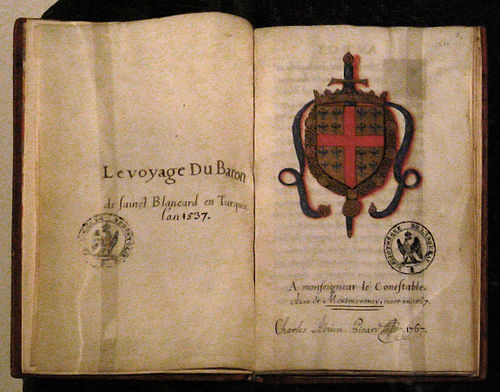 Le voyage Du Baron
de sainct Blancard en Turquie
l'an 1537.
A monseigneur le Conestable.
de Montmorency, mort en 1567.
Charles Adrien Picard 1767.